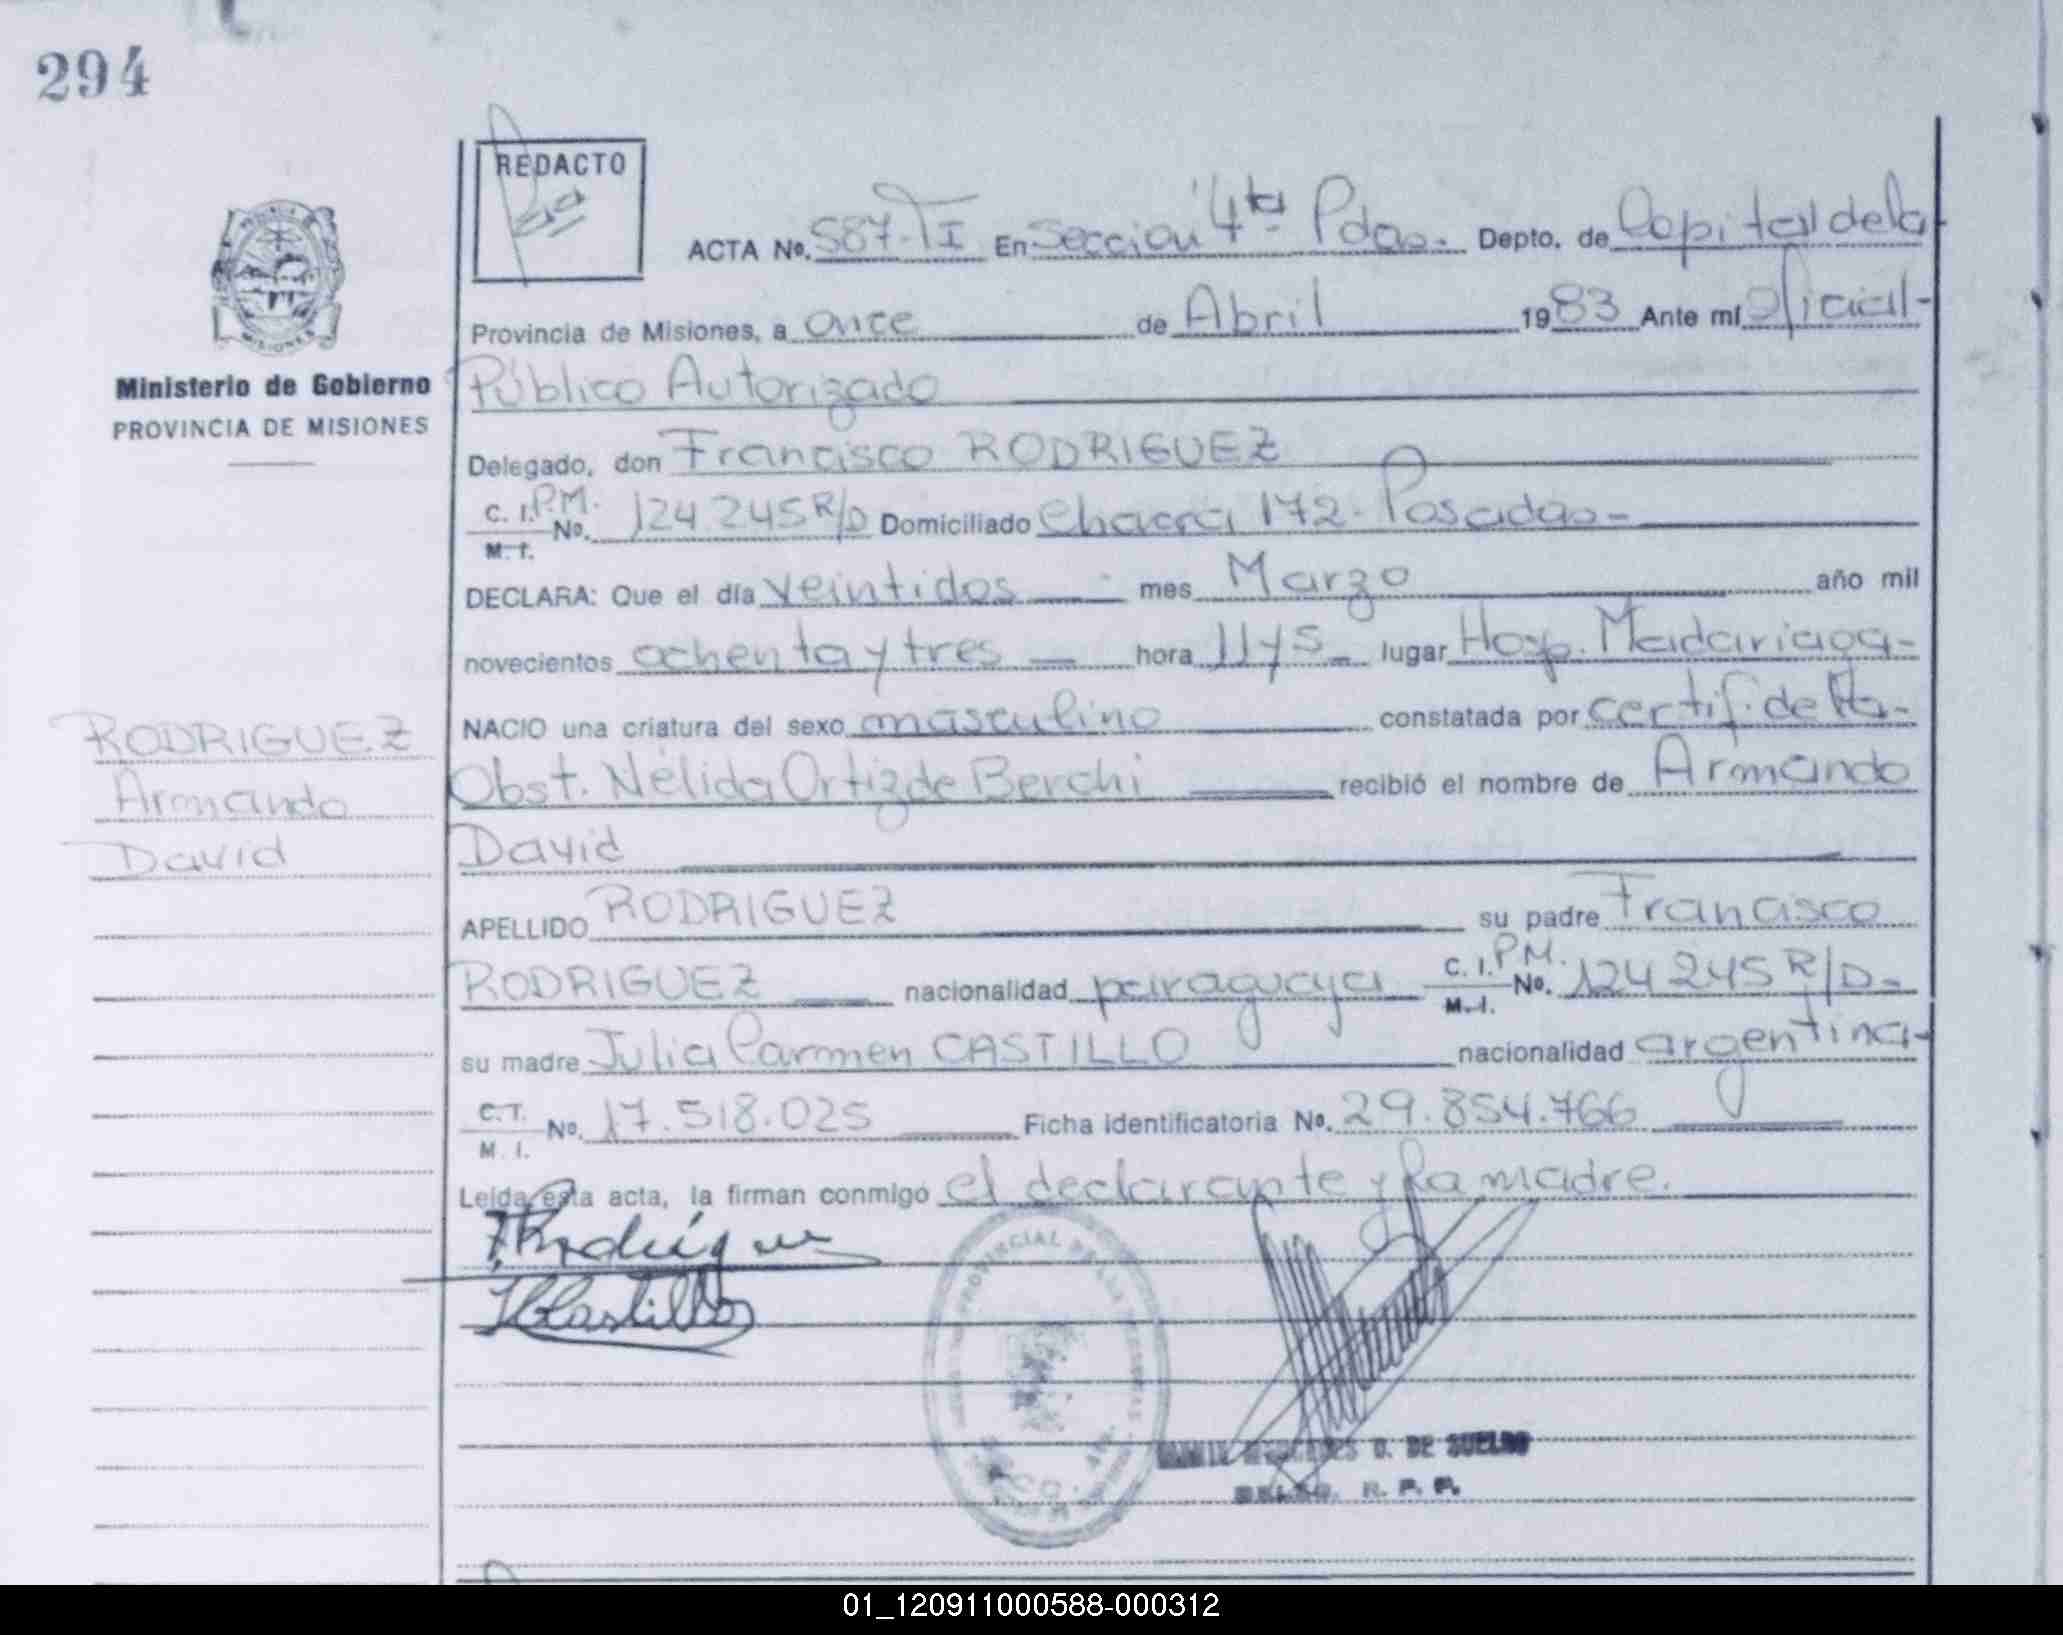 294
REDACTO
ACTA No. 587-TI En Sección 4ta Pdas. Depto. de Capital de la
Provincia de Misiones, a once de Abril 1983 Ante mí Oficial-
Ministerio de Gobierno
PROVINCIA DE MISIONES
Público Autorizado
Delegado, don Francisco RODRIGUEZ
C. I. P.M.
M. I. No. 124 245 R/D Domiciliado Chacra 172. Posadas-
DECLARA: Que el día veintidos mes Marzo año mil
novecientos ochenta y tres hora 11 y 5 lugar Hosp. Madariaga-
NACIO una criatura del sexo masculino constatada por certif. de la
Obst. Nélida Ortiz de Berchi recibió el nombre de Armando
David
RODRIGUEZ
Armando
David
APELLIDO RODRIGUEZ su padre Francisco
RODRIGUEZ nacionalidad paraguaya C. I. P.M. M. I. No. 124 245 R/D-
su madre Julia Carmen CASTILLO nacionalidad argentina-
C.T. M. I. No. 17.518.025 Ficha Identificatoria No. 29.854.766
Leída esta acta, la firman conmigo el declarante y la madre.
F Rodríguez
JCCastillo
PROVINCIAL DE LAS PERSONAS
D. DE SUELDO
R. P. P.
01_120911000588-000312